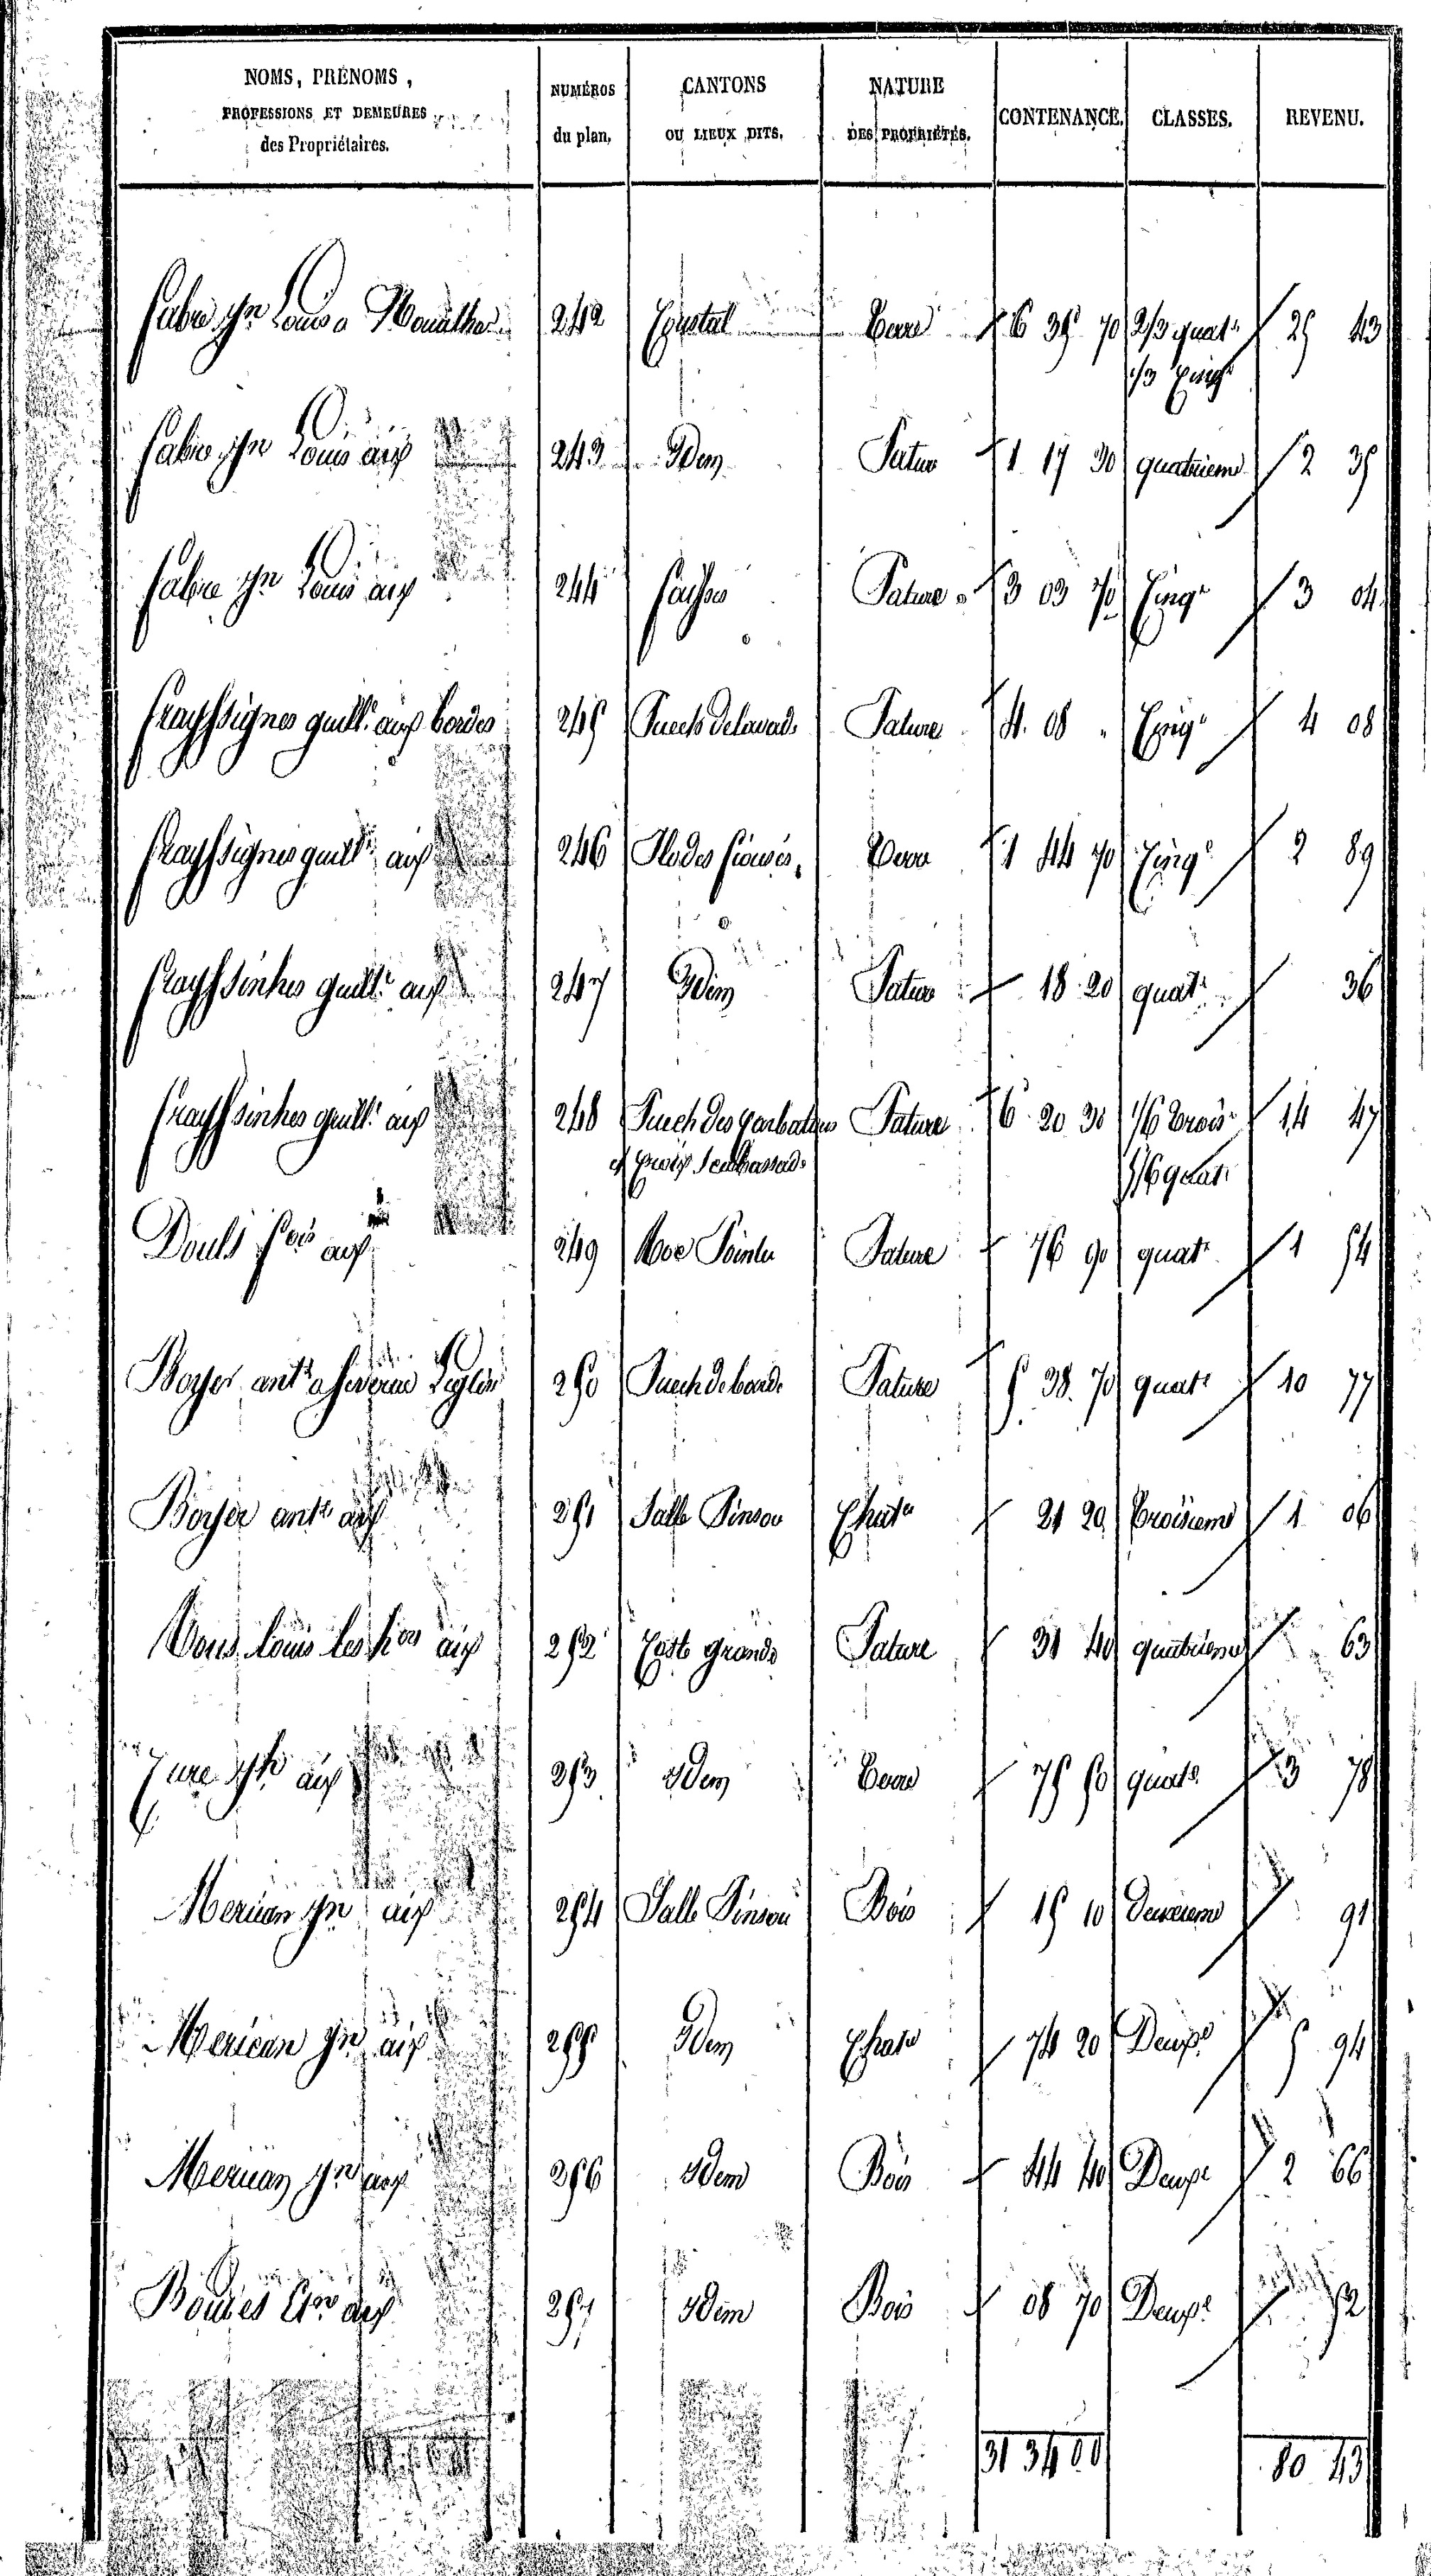 NOMS, PRÉNOMS, PROFESSIONS ET DEMEURES des Propriétaires. NUMÉROS du plan, CANTONS OU LIEUX DITS. NATURE DES PROPRIÉTÉS. CONTENANCE. CLASSES. REVENU.
fabre Jn Louis a 242 Coustal terre 6 35 70 2/3 quate 25 43
1/3 Cinqe
fabre Jn Louis aux 243 Idem Pature 1 17 30 quatrieme 2 35
fabre Jn Louis aux 244 Pature 3 03 70 Cinqe 3 04
frayssignes guille aux bordes 245 Puech Pature 4 08 Cinqe 4 08
frayssignes guille aux 246 terre 1 44 70 Cinqe 2 89
frayssinhes guille aux 247 Idem Pature 18 20 quate 36
frayssinhes guille aux 248 Puech des Pature 6 20 30 1/6 trois 14 47
et Croix 5/6 quate
Douls fois aux 249 Pature 76 90 quate 1 54
Boyer ante a 250 Puech Pature 5 38 70 quate 10 77
Boyer ante aux 251 Salle Pinsou Chate 21 20 troisieme 1 06
Louis les hers aux 252 Coste grande Pature 31 40 quatrieme 63
Jph aux 253 Idem terre 75 50 quate 3 78
Merican Jn aux 254 Salle Pinsou Bois 15 10 Deuxieme 91
Merican Jn aux 255 Idem Chate 74 20 Deuxe 5 94
Merican Jn aux 256 Idem Bois 44 40 Deuxe 2 66
aux 257 Idem Bois 08 70 Deuxe 52
31 34 00 80 43